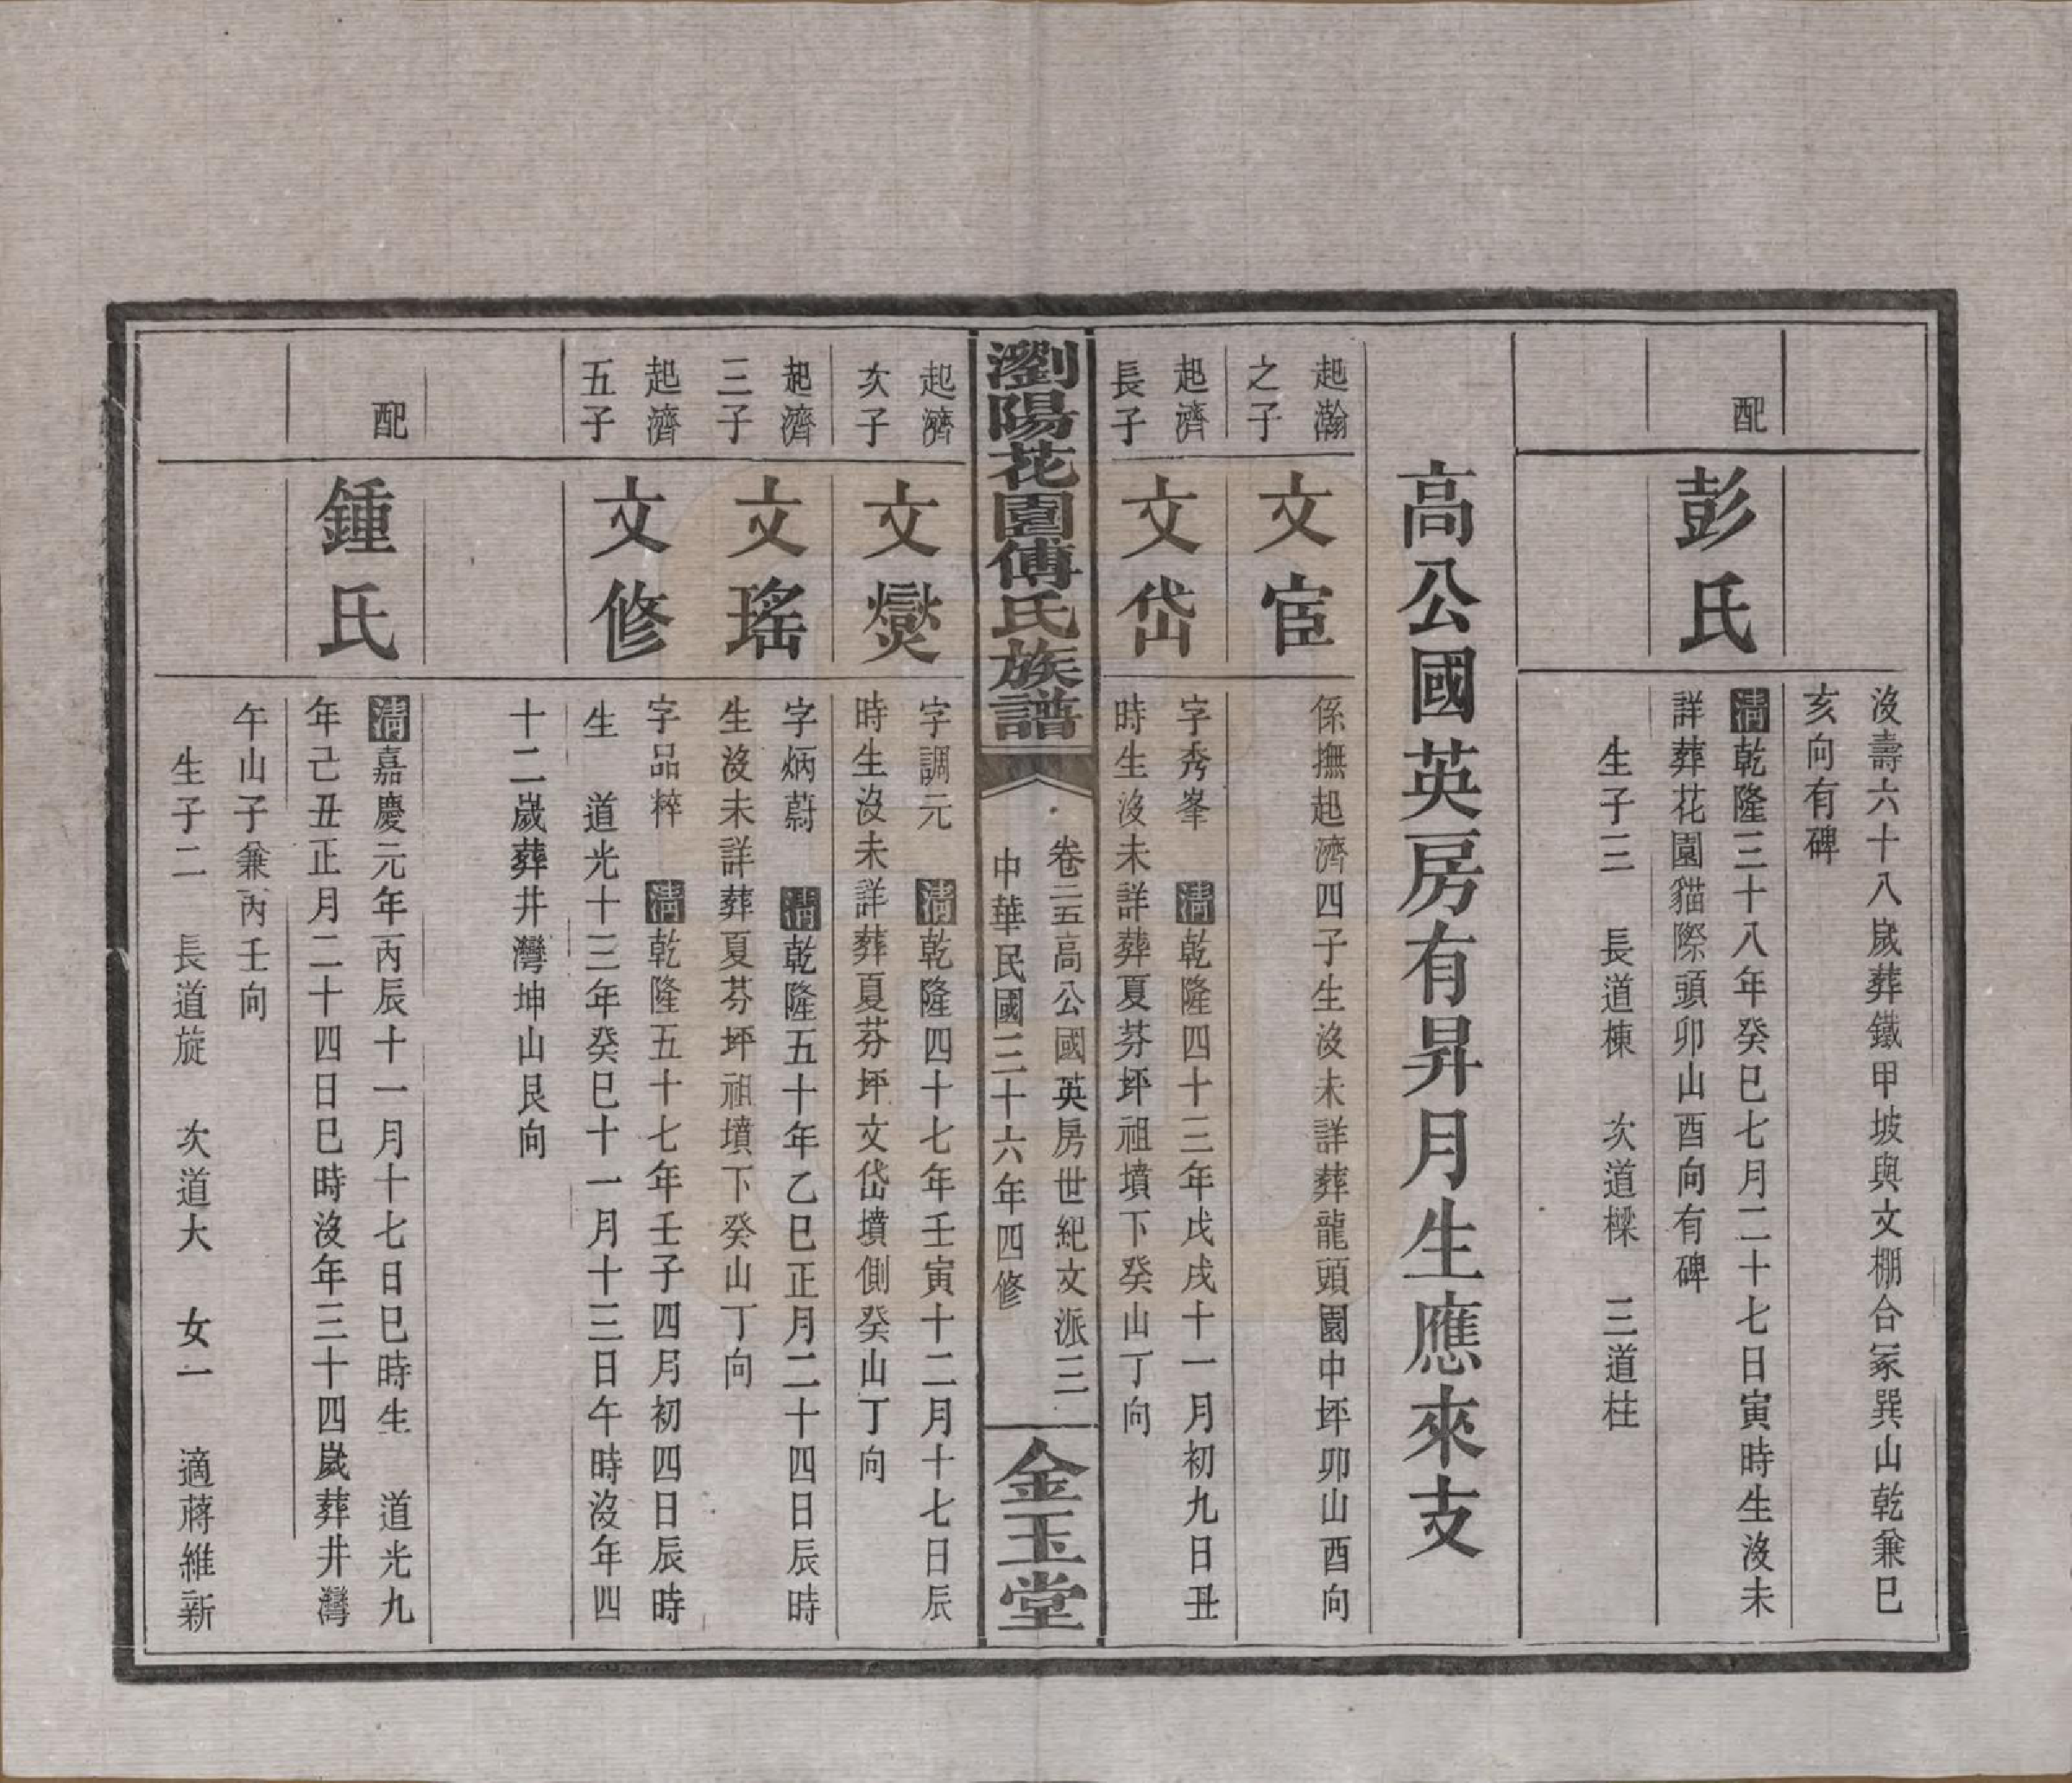 沒壽六十八歲葬鐵甲坡與文棚合冢巽山乾兼巳
亥向有碑
配
彭氏
清乾隆三十八年癸巳七月二十七日寅時生沒未
詳葬花園貓際頭卯山酉向有碑
生子三 長道棟 次道樑 三道柱
高公國英房有昇月生應來支
起瀚
之子
文宦
係撫起濟四子生沒未詳葬龍頭園中坪卯山酉向
起濟
長子
文岱
字秀峯 清乾隆四十三年戊戌十一月初九日丑
時生沒未詳葬夏芬坪祖墳下癸山丁向
瀏陽花園傅氏族譜
卷二五高公國英房世紀文派三
中華民國三十六年四修
金玉堂
起濟
次子
文爕
字調元 清乾隆四十七年壬寅十二月十七日辰
時生沒未詳葬夏芬坪文岱墳側癸山丁向
起濟
三子
文瑤
字炳蔚 清乾隆五十年乙巳正月二十四日辰時
生沒未詳葬夏芬坪祖墳下癸山丁向
起濟
五子
文修
字品粹 清乾隆五十七年壬子四月初四日辰時
生 道光十三年癸巳十一月十三日午時沒年四
十二歲葬井灣坤山艮向
配
鍾氏
清嘉慶元年丙辰十一月十七日巳時生 道光九
年己丑正月二十四日巳時沒年三十四歲葬井灣
午山子兼丙壬向
生子二 長道旋 次道大 女一 適蔣維新